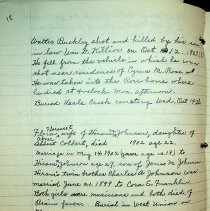 Walter Buckley shot and killed by his
in law Geo. E. Killion on Oct 12, 1902
He fell from the vehicle in which he was
shot near residence of Cyrus M. Rowe and
He was taken into the Rowe home where
he died at o'clock Mon. afternoon.
Buried cemetery Wed. Oct 14th
Harriet
Flora, wife of Hiram Johnson, daughter of
Albert Colbert, died 1902 age 22.
Marriage in May 14, 1902 (when age is 19) to
Hiram Johnson age 27, son of James M. Johnson
Hiram's twin brother Charles A. Johnson was
married June 21, 1899 to Cora E. Franklin.
Both girls were musicians and both died of
Brain fever. Buried in West Union